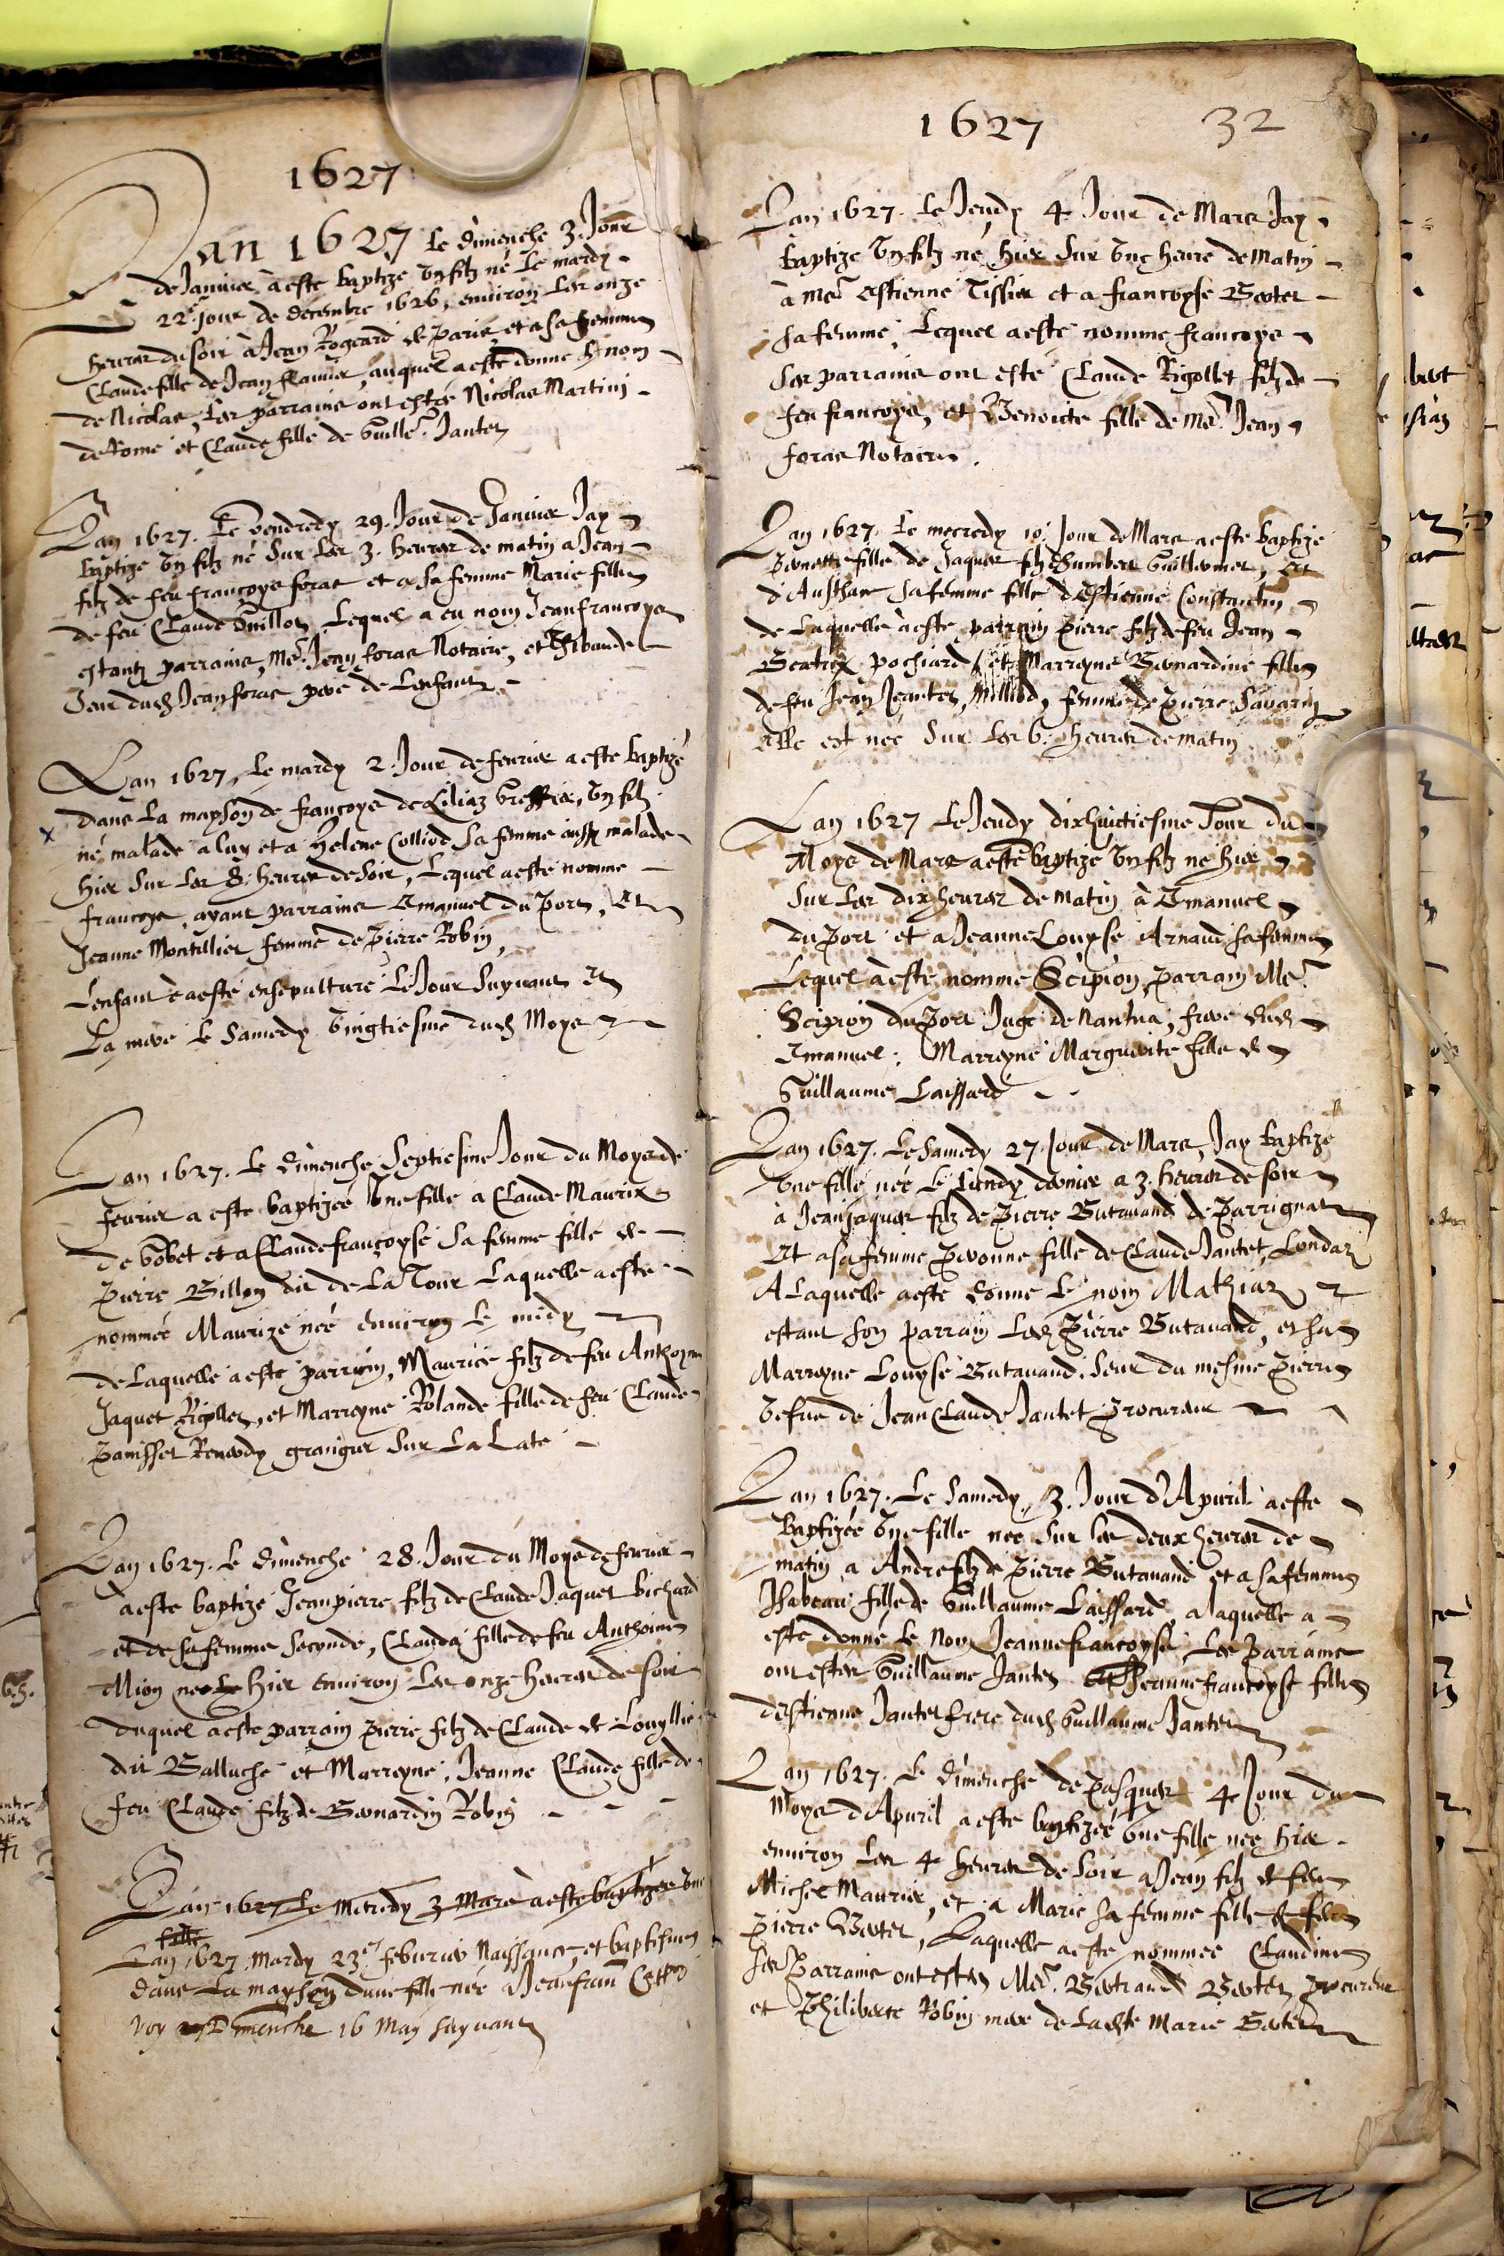 1627
Lan 1627 le dimenche 3. Jour
de Janvier a este baptize Un filz né Le mardy
22e Jour de decembre 1626, environ Les onze
heures du soir à Jean Rogeard de Paris, et a sa femme
Claude fille de Jean flavier, auquel a este donne le nom
de Nicolas, Les parrains ont estés Nicolas Martin
de Rome et Claude fille de Guillе. Jantet
Lan 1627. Le vendredy 29. Jour de Janvier Jay
baptize Un filz né Sur Les 3. heures de matin a Jean
filz de feu françoys foras et a sa femme Marie fille
de feu Claude Guillot, Lequel a eu nom Jeanfrancoys
estantz parrains, Me. Jean foras Notaire, et Thibaude
Seur dud Jean foras pere de Lenfant.
Lan 1627, Le mardy 2. Jour de fevrier a este baptizé
dans La mayson de françoys de Liliaz Greffier, Un filz
né malade a luy et a Helene Colliod Sa femme aussy malade
hier Sur Les 8. heures de Soir, Lequel a este nomme
francoys, ayant parrains Emanuel du Port, et
Jeanne Montillier femme de Pierre Robin,
Lenfant a esté ensepulturé Le Jour Suyvant et
La mere le Samedy Vingtiesme dud Moys
Lan 1627. Le dimenche Septiesme Jour du Moys de
fevrier a este baptizee Une fille a Claude Maurix
de bobet et a Claudefrançoyse Sa femme fille de
Pierre Billon dit de La Tour Laquelle a este
nommée Maurize née environ Le midy
de Laquelle a esté parrain, Maurice filz de feu Anthoyne
Jaquet Rigollet, et Marreyne Rolande fille de feu Claude
Panisset Renardy granger Sur La Late
Lan 1627. Le dimenche 28. Jour du Moys de fevrier
a este baptizé Jeanpierre filz de Claude Jaquet bichard
et de sa femme Seconde, Clauda fille de feu Anthoine
Mion né hier environ Les onze heures de soir
duquel a este parrain Pierre filz de Claude de Louyllie
dit Galluche et Marreyne, Jeanne Claude fille de
feu Claude filz de Bernardin Robin
Lan 1627 Le Mecredy 3 Mars a este baptizee Une
fille
Lan 1627 Mardy 23e feburier Naissance et baptisme
dans La mayson dune fille née a Jeanfran
voy Dimenche 16 May suyvant
1627 32
Lan 1627. Le Jeudy 4. Jour de Mars Jay
baptize Un filz né hier Sur Une heure de Matin
à Me. Estienne Tissier et a francoyse Berter
sa femme, Lequel a esté nomme francoys
Les parrains ont esté Claude Rigollet filz de
feu francoys, et Benoicte fille de Me. Jean
foras Notaire.
Lan 1627. Le mecredy 10. Jour de Mars a este baptizé
Pernette fille de Jaques filz d'humbert Guillermet, et
d'Austhase sa femme fille d'Estienne Constantin
de Laquelle a este parrain Pierre filz de feu Jean
Beatrix Pochiard et Marreyne Bernardine fille
de feu Jean Jeantet Milliod, femme de Pierre Savarin
Elle est née Sur Les 6. heures de matin
Lan 1627 Le Jeudy dixhuictiesme Jour du
Moys de Mars a este baptizé Un filz né hier
Sur Les dix heures de matin à Emanuel
du Port et a Jeanne Louyse Arnaud sa femme
Lequel a este nomme Scipion, Parrain Me.
Scipion du Port Juge de Nantua, frere dud
Emanuel. Marreyne Marguerite fille de
Guillaume Laissard
Lan 1627. Le Samedy 27. Jour de Mars, Jay baptize
Une fille née Le Lundy dernier a 3. heures de soir
à Jean Jaques filz de Pierre Butavand de Parrignat
Et a sa femme Pernonne fille de Claude Jantet Londaz
A Laquelle a este donne Le nom Mathiaz
estant son parrain Led Pierre Butavand, et sa
Marreyne Louyse Butavand. Seur du mesme Pierre
Vefve de Jean Claude Jantet Procureur
Lan 1627. Le Samedy. 3. Jour d'Apvril a este
baptizée Une fille née Sur les deux heures de
matin a Andre filz de Pierre Butavand et a sa femme
Isabeau fille de Guillaume Laissard a laquelle a
este donné Le Nom Jeannefrancoyse, Les Parrains
ont estés Guillaume Jantet Et Jeannefrancoyse fille
destienne Jantet frere dud Guillaume Jantet
Lan 1627. Le dimenche de Pasques 4. Jour du
Moys d'Apvril a este baptizée Une fille née hier
environ Les 4. heures de Soir a Jean filz de feu
Michel Maurier, et a Marie sa femme fille de feu
Pierre Berter, Laquelle a este nommée Claudine
Les Parrains ont estés Me. Bertrand Berter Procureur
et Philiberte Robin mere de Ladte Marie Berter